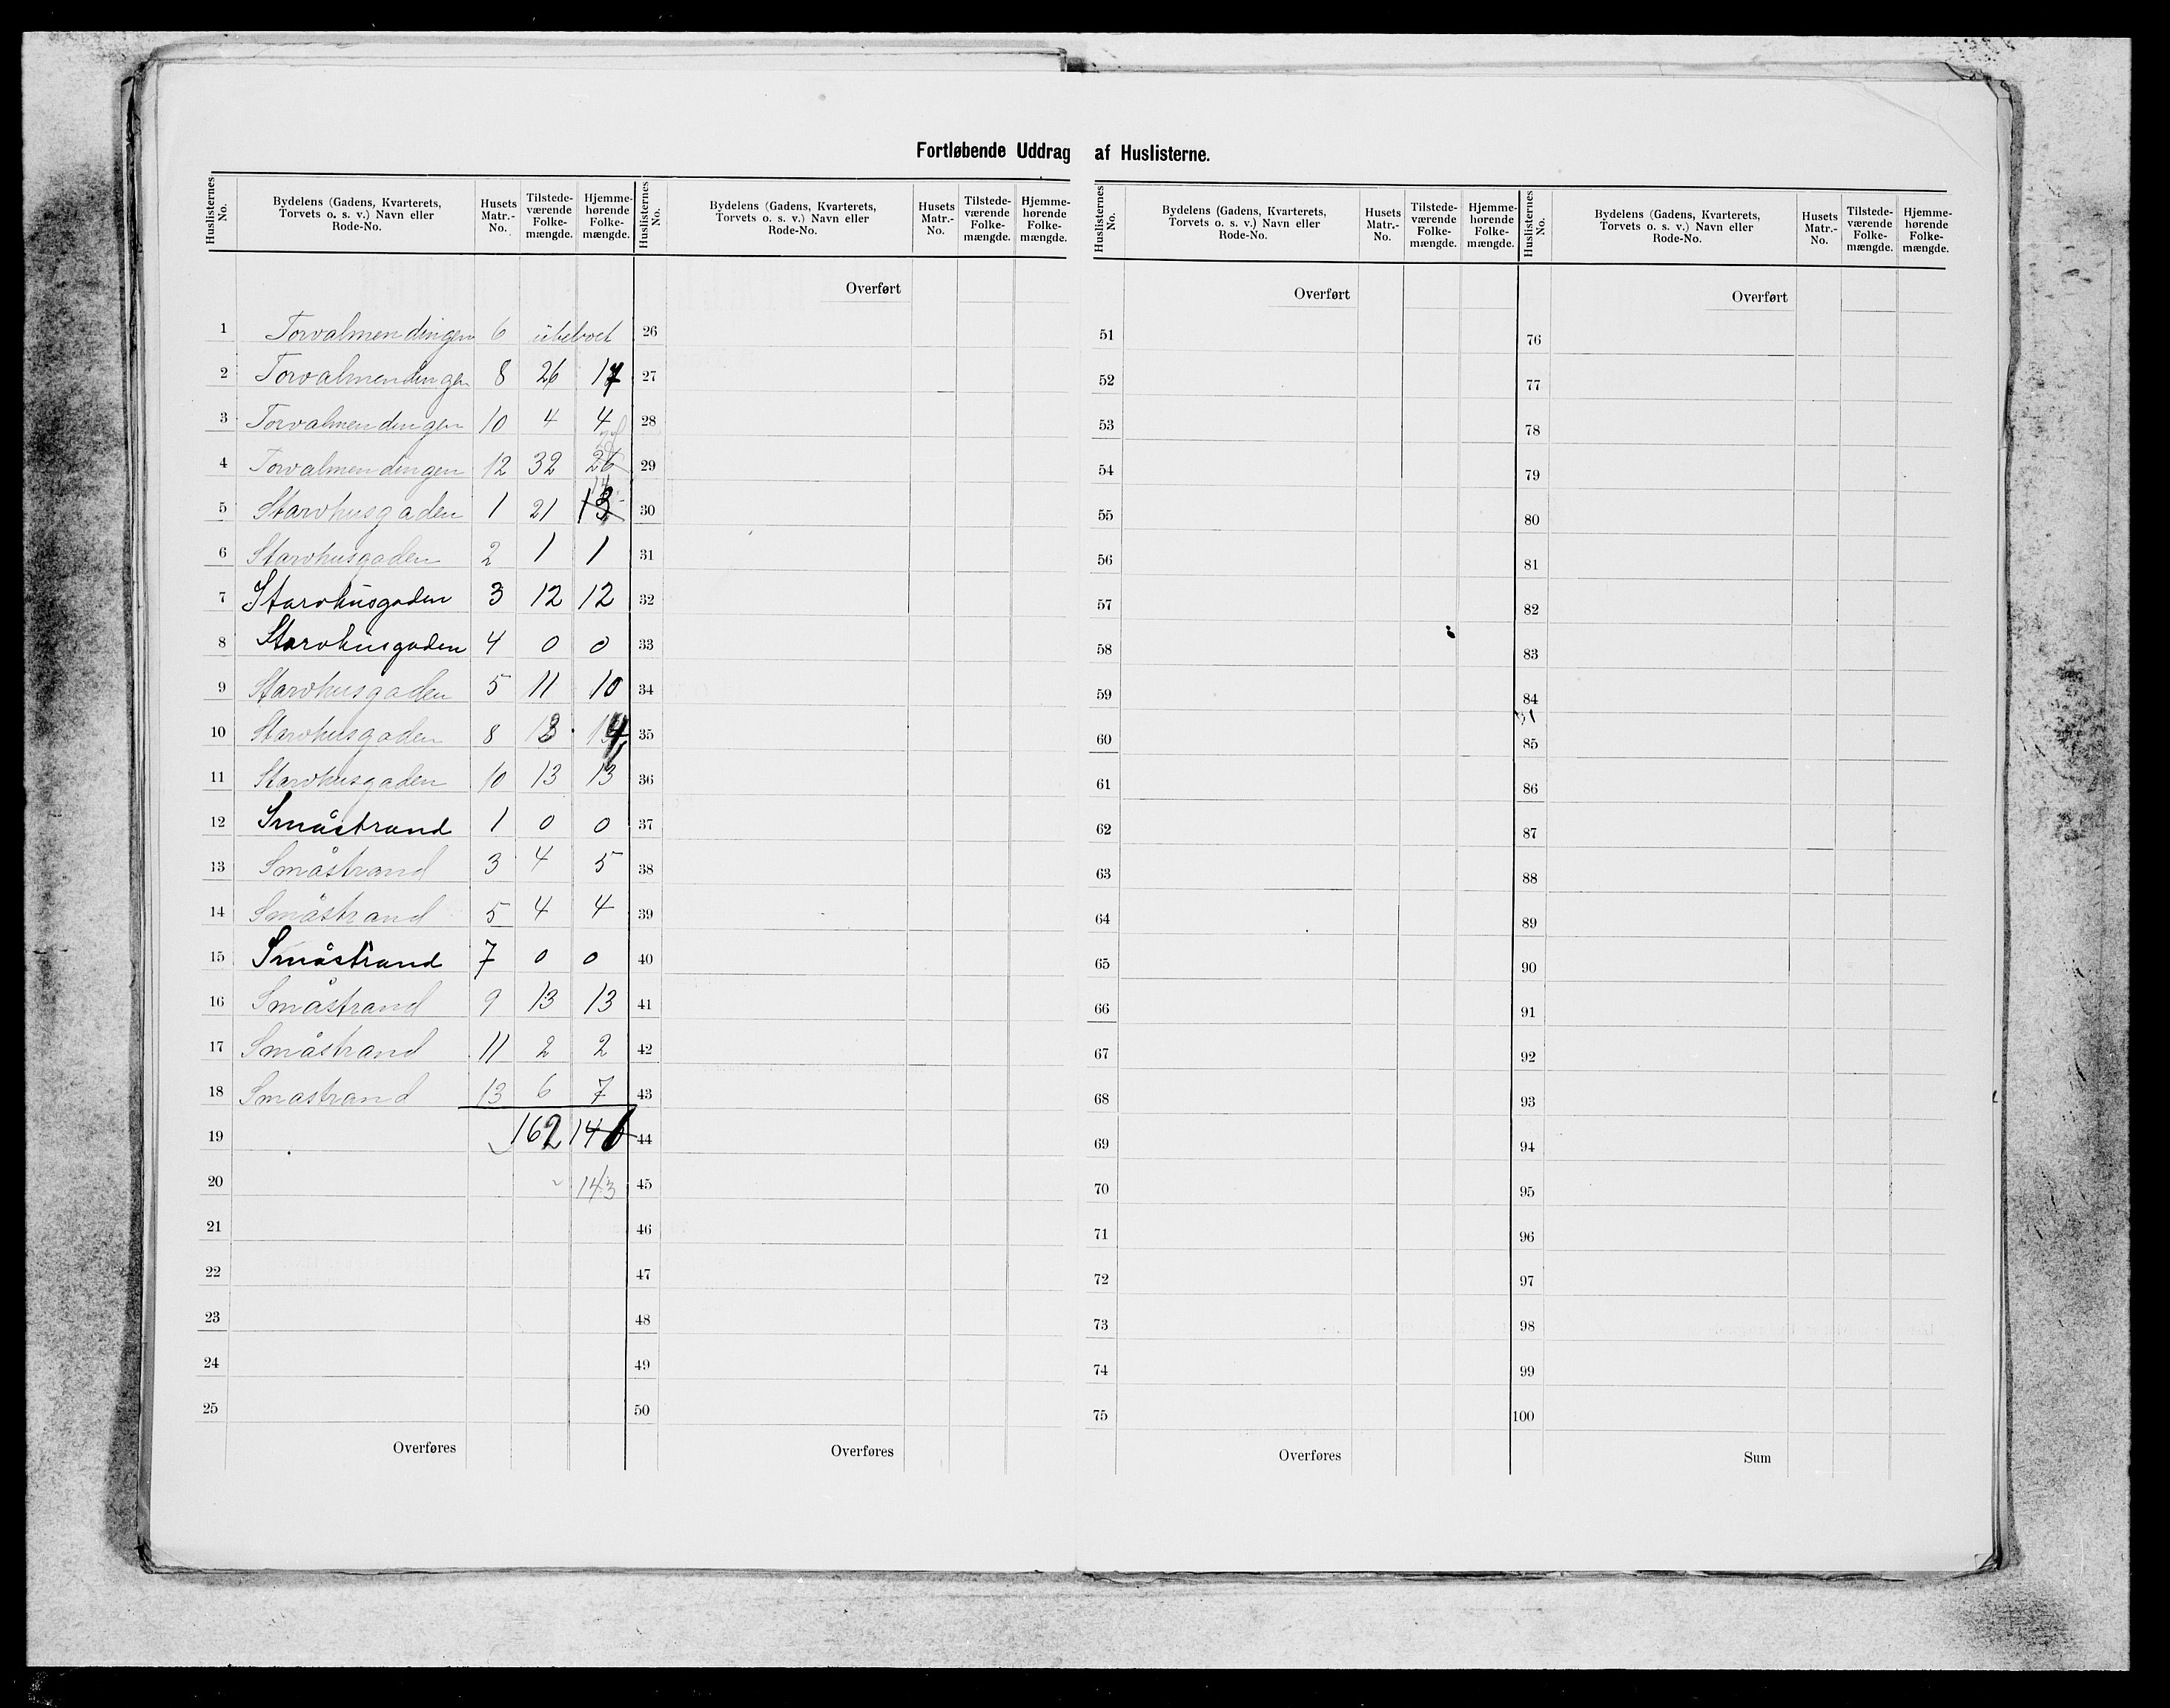 Fortløbende Uddrag af Huslisterne.
Huslisternes No. Bydelens (Gadens, Kvarterets, Torvets o. s. v.) Navn eller Rode-No. Husets Matr.-No. Tilstedeværende Folkemængde. Hjemmehørende Folkemængde.
1 Torvalmendingen 6 ubeboet
2 Torvalmendingen 8 26 17
3 Torvalmendingen 10 4 4
4 Torvalmendingen 12 32 26
5 Starvhusgaden 1 21 13 14
6 Starvhusgaden 2 1 1
7 Starvhusgaden 3 12 12
8 Starvhusgaden 4 0 0
9 Starvhusgaden 5 11 10
10 Starvhusgaden 8 13 14
11 Starvhusgaden 10 13 13
12 Småstrand 1 0 0
13 Småstrand 3 4 5
14 Småstrand 5 4 4
15 Småstrand 7 0 0
16 Småstrand 9 13 13
17 Småstrand 11 2 2
18 Smastrand 13 6 7
19 162 146
20 143
21
22
23
24
25
Overføres
Huslisternes No. Bydelens (Gadens, Kvarterets, Torvets o. s. v.) Navn eller Rode-No. Husets Matr.-No. Tilstedeværende Folkemængde. Hjemmehørende Folkemængde.
Overført
26
27
28
29
30
31
32
33
34
35
36
37
38
39
40
41
42
43
44
45
46
47
48
49
50
Overføres
Huslisternes No. Bydelens (Gadens, Kvarterets, Torvets o. s. v.) Navn eller Rode-No. Husets Matr.-No. Tilstedeværende Folkemængde. Hjemmehørende Folkemængde.
Overført
51
52
53
54
55
56
57
58
59
60
61
62
63
64
65
66
67
68
69
70
71
72
73
74
75
Overføres
Huslisternes No. Bydelens (Gadens, Kvarterets, Torvets o. s. v.) Navn eller Rode-No. Husets Matr.-No. Tilstedeværende Folkemængde. Hjemmehørende Folkemængde.
Overført
76
77
78
79
80
81
82
83
84
85
86
87
88
89
90
91
92
93
94
95
96
97
98
99
100
Sum